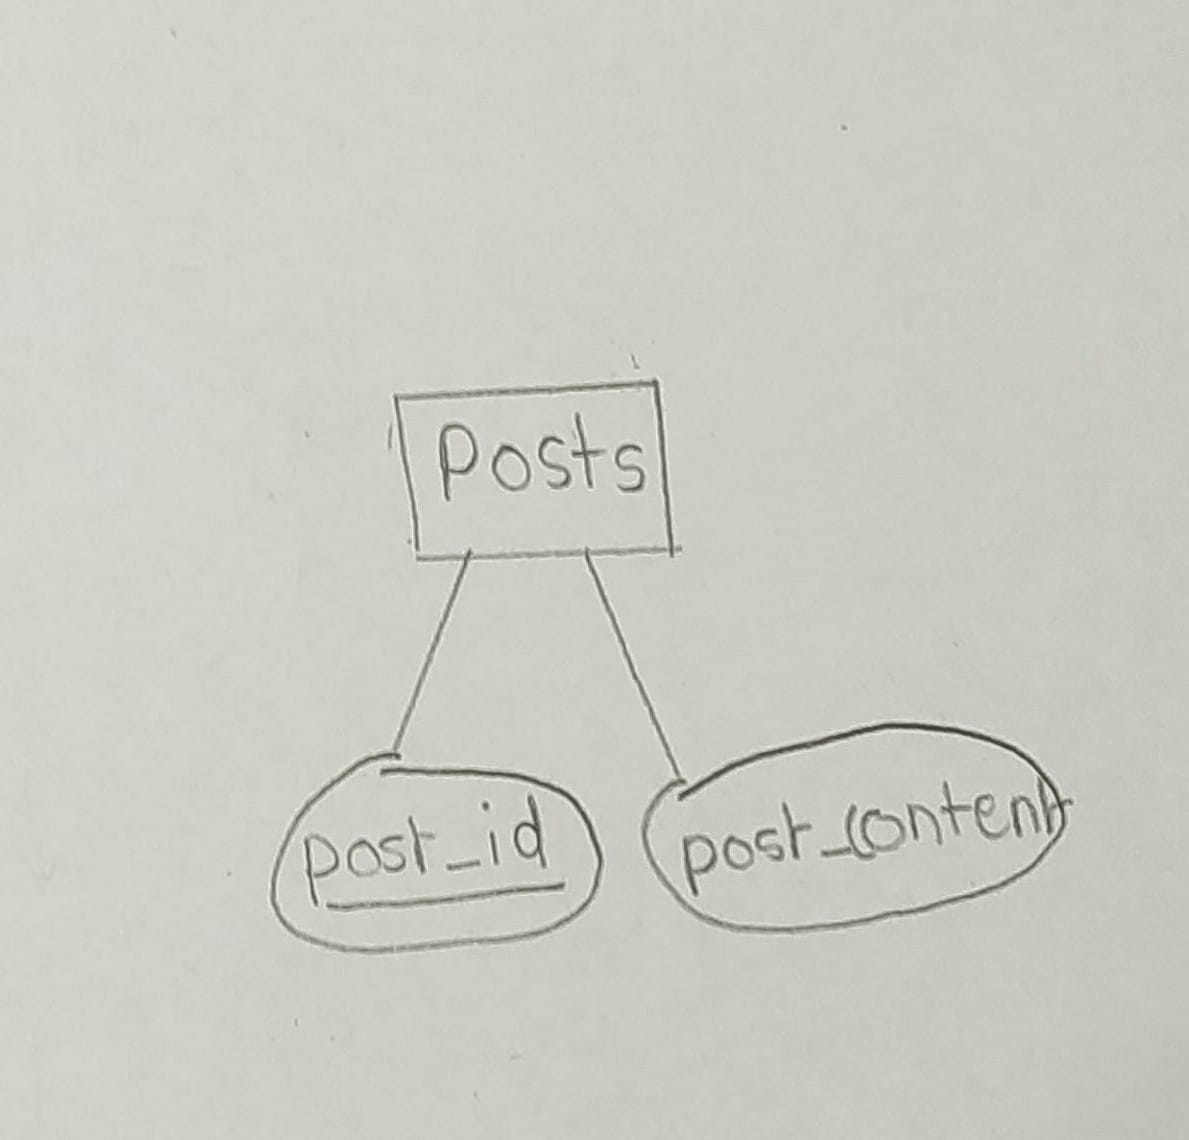 Posts
post_id
post_content